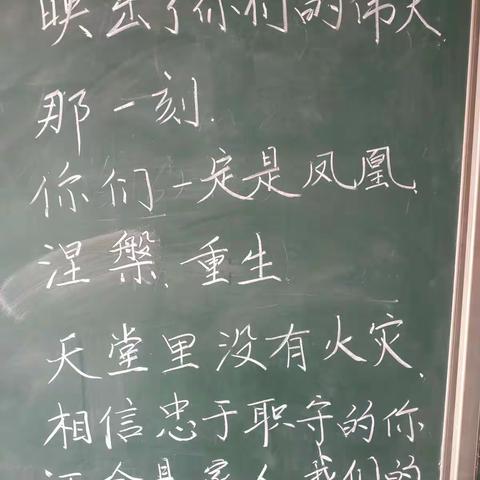 映出了你们的伟大
那一刻.
你们一定是凤凰、
涅槃、重生
天堂里没有火灾、
相信忠于职守的你
还会是家人、我们的